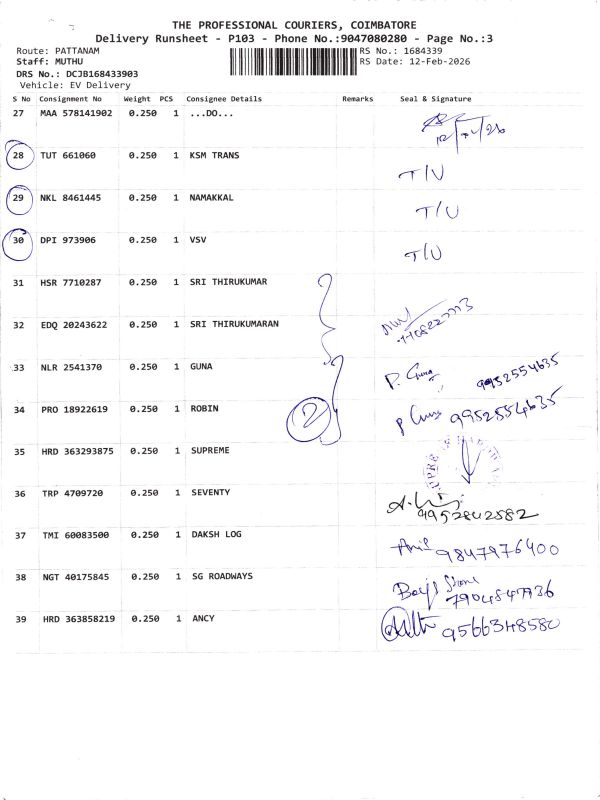 THE PROFESSIONAL COURIERS, COIMBATORE
Delivery Runsheet - P103 - Phone No.:9047080280 - Page No.:3
Route: PATTANAM RS No.: 1684339
Staff: MUTHU RS Date: 12-Feb-2026
DRS No.: DCJB168433903
Vehicle: EV Delivery
S No Consignment No Weight PCS Consignee Details Remarks Seal & Signature
27 MAA 578141902 0.250 1 ...DO...
28 TUT 661060 0.250 1 KSM TRANS T/U
29 NKL 8461445 0.250 1 NAMAKKAL T/U
30 DPI 973906 0.250 1 VSV T/U
31 HSR 7710287 0.250 1 SRI THIRUKUMAR
32 EDQ 20243622 0.250 1 SRI THIRUKUMARAN
33 NLR 2541370 0.250 1 GUNA P. Guna 9952554635
34 PRO 18922619 0.250 1 ROBIN 2 P Guna 9952554635
35 HRD 363293875 0.250 1 SUPREME
36 TRP 4709720 0.250 1 SEVENTY 9952842582
37 TMI 60083500 0.250 1 DAKSH LOG 9847976400
38 NGT 40175845 0.250 1 SG ROADWAYS
39 HRD 363858219 0.250 1 ANCY 9566348580